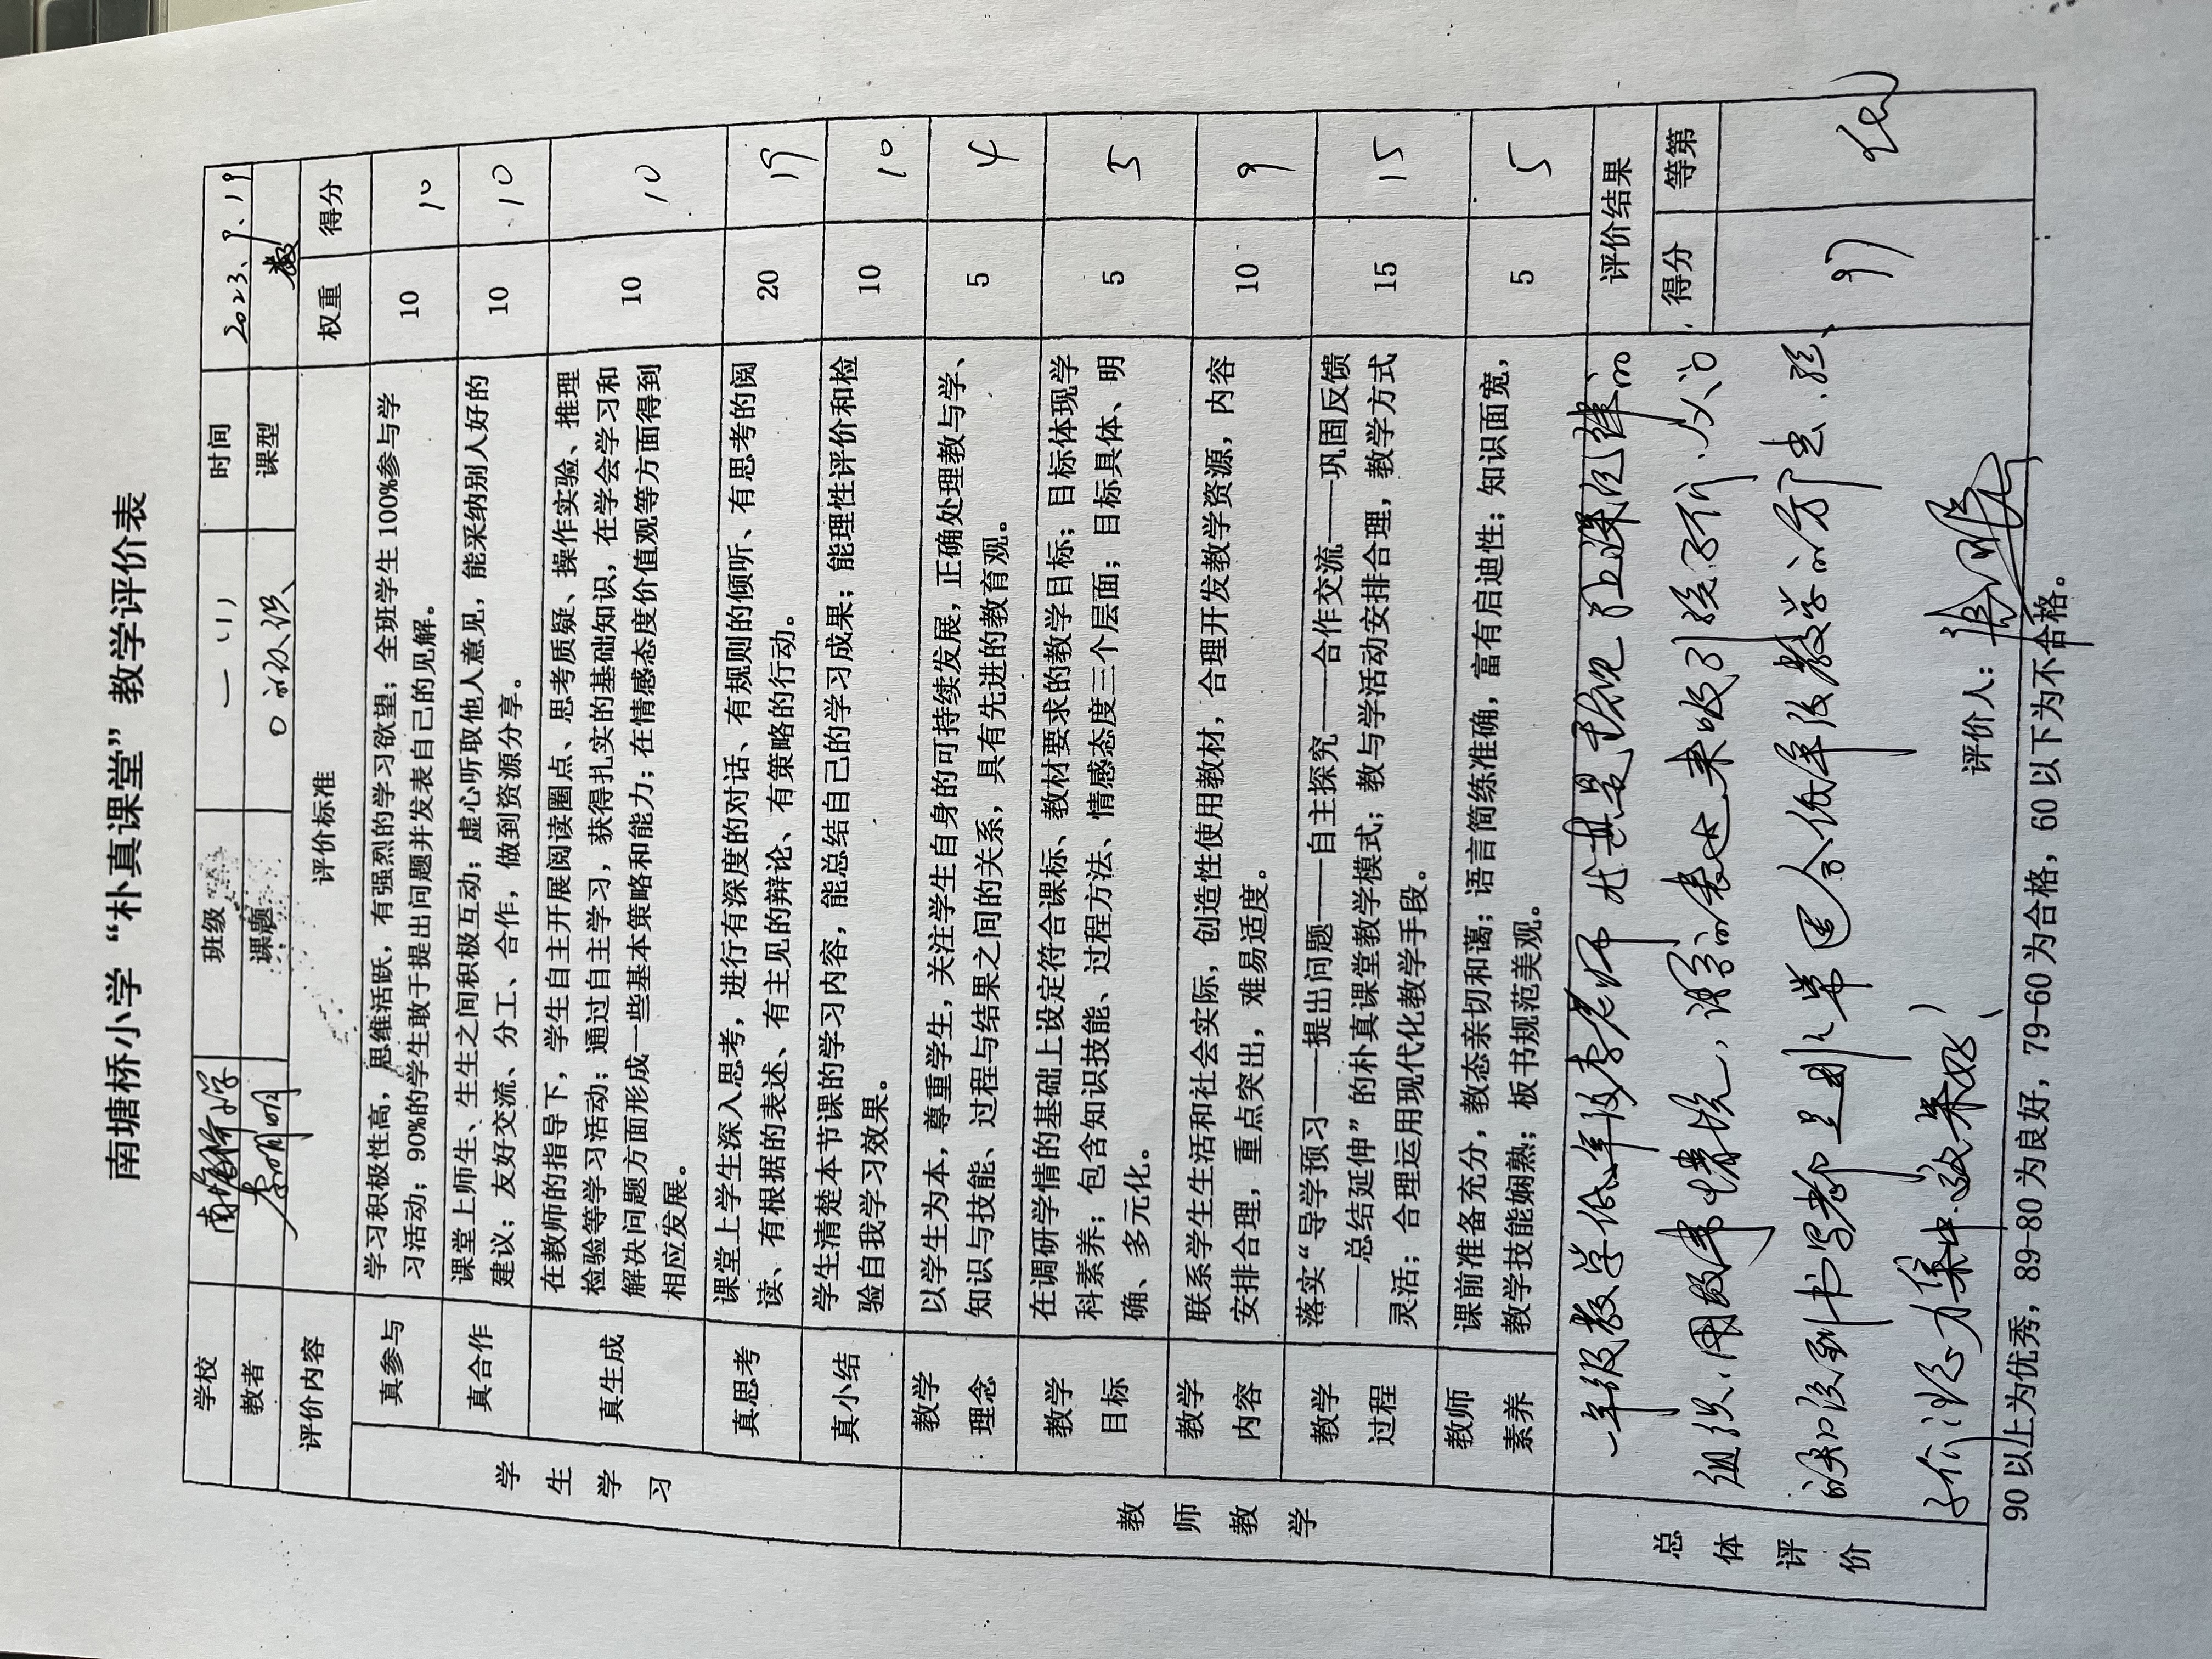 南塘桥小学“朴真课堂”教学评价表
学校 南塘桥小学 班级 一（1） 时间 2023、9、19
教者 李明明 课题 0的认识 课型 新
评价内容 评价标准 权重 得分
学生学习
真参与 学习积极性高，思维活跃，有强烈的学习欲望；全班学生100%参与学 10 10
习活动；90%的学生敢于提出问题并发表自己的见解。
真合作 课堂上师生、生生之间积极互动；虚心听取他人意见，能采纳别人好的 10 10
建议；友好交流、分工、合作，做到资源分享。
真生成 在教师的指导下，学生自主开展阅读圈点、思考质疑、操作实验、推理 10 10
检验等学习活动；通过自主学习，获得扎实的基础知识，在学会学习和
解决问题方面形成一些基本策略和能力；在情感态度价值观等方面得到
相应发展。
真思考 课堂上学生深入思考，进行有深度的对话、有规则的倾听、有思考的阅 20 19
读、有根据的表述、有主见的辩论、有策略的行动。
真小结 学生清楚本节课的学习内容，能总结自己的学习成果；能理性评价和检 10 10
验自我学习效果。
教师教学
教学理念 以学生为本，尊重学生，关注学生自身的可持续发展，正确处理教与学、 5 4
知识与技能、过程与结果之间的关系，具有先进的教育观。
教学目标 在调研学情的基础上设定符合课标、教材要求的教学目标；目标体现学 5 5
科素养；包含知识技能、过程方法、情感态度三个层面；目标具体、明
确、多元化。
教学内容 联系学生生活和社会实际，创造性使用教材，合理开发教学资源，内容 10 9
安排合理，重点突出，难易适度。
教学过程 落实“导学预习——提出问题——自主探究——合作交流——巩固反馈 15 15
——总结延伸”的朴真课堂教学模式；教与学活动安排合理，教学方式
灵活；合理运用现代化教学手段。
教师素养 课前准备充分，教态亲切和蔼；语言简练准确，富有启迪性；知识面宽， 5 5
教学技能娴熟；板书规范美观。
总体评价
一年级教学低年段李老师尤其是重视了上课纪律的
组织，用故事情境，语言的表达来吸引孩子们，从0
的知识到书写都是非常适合低年段教学的方法，孩
子们注意力集中效果好！
评价结果
得分 等第
97 优
评价人：
90以上为优秀，89-80为良好，79-60为合格，60以下为不合格。